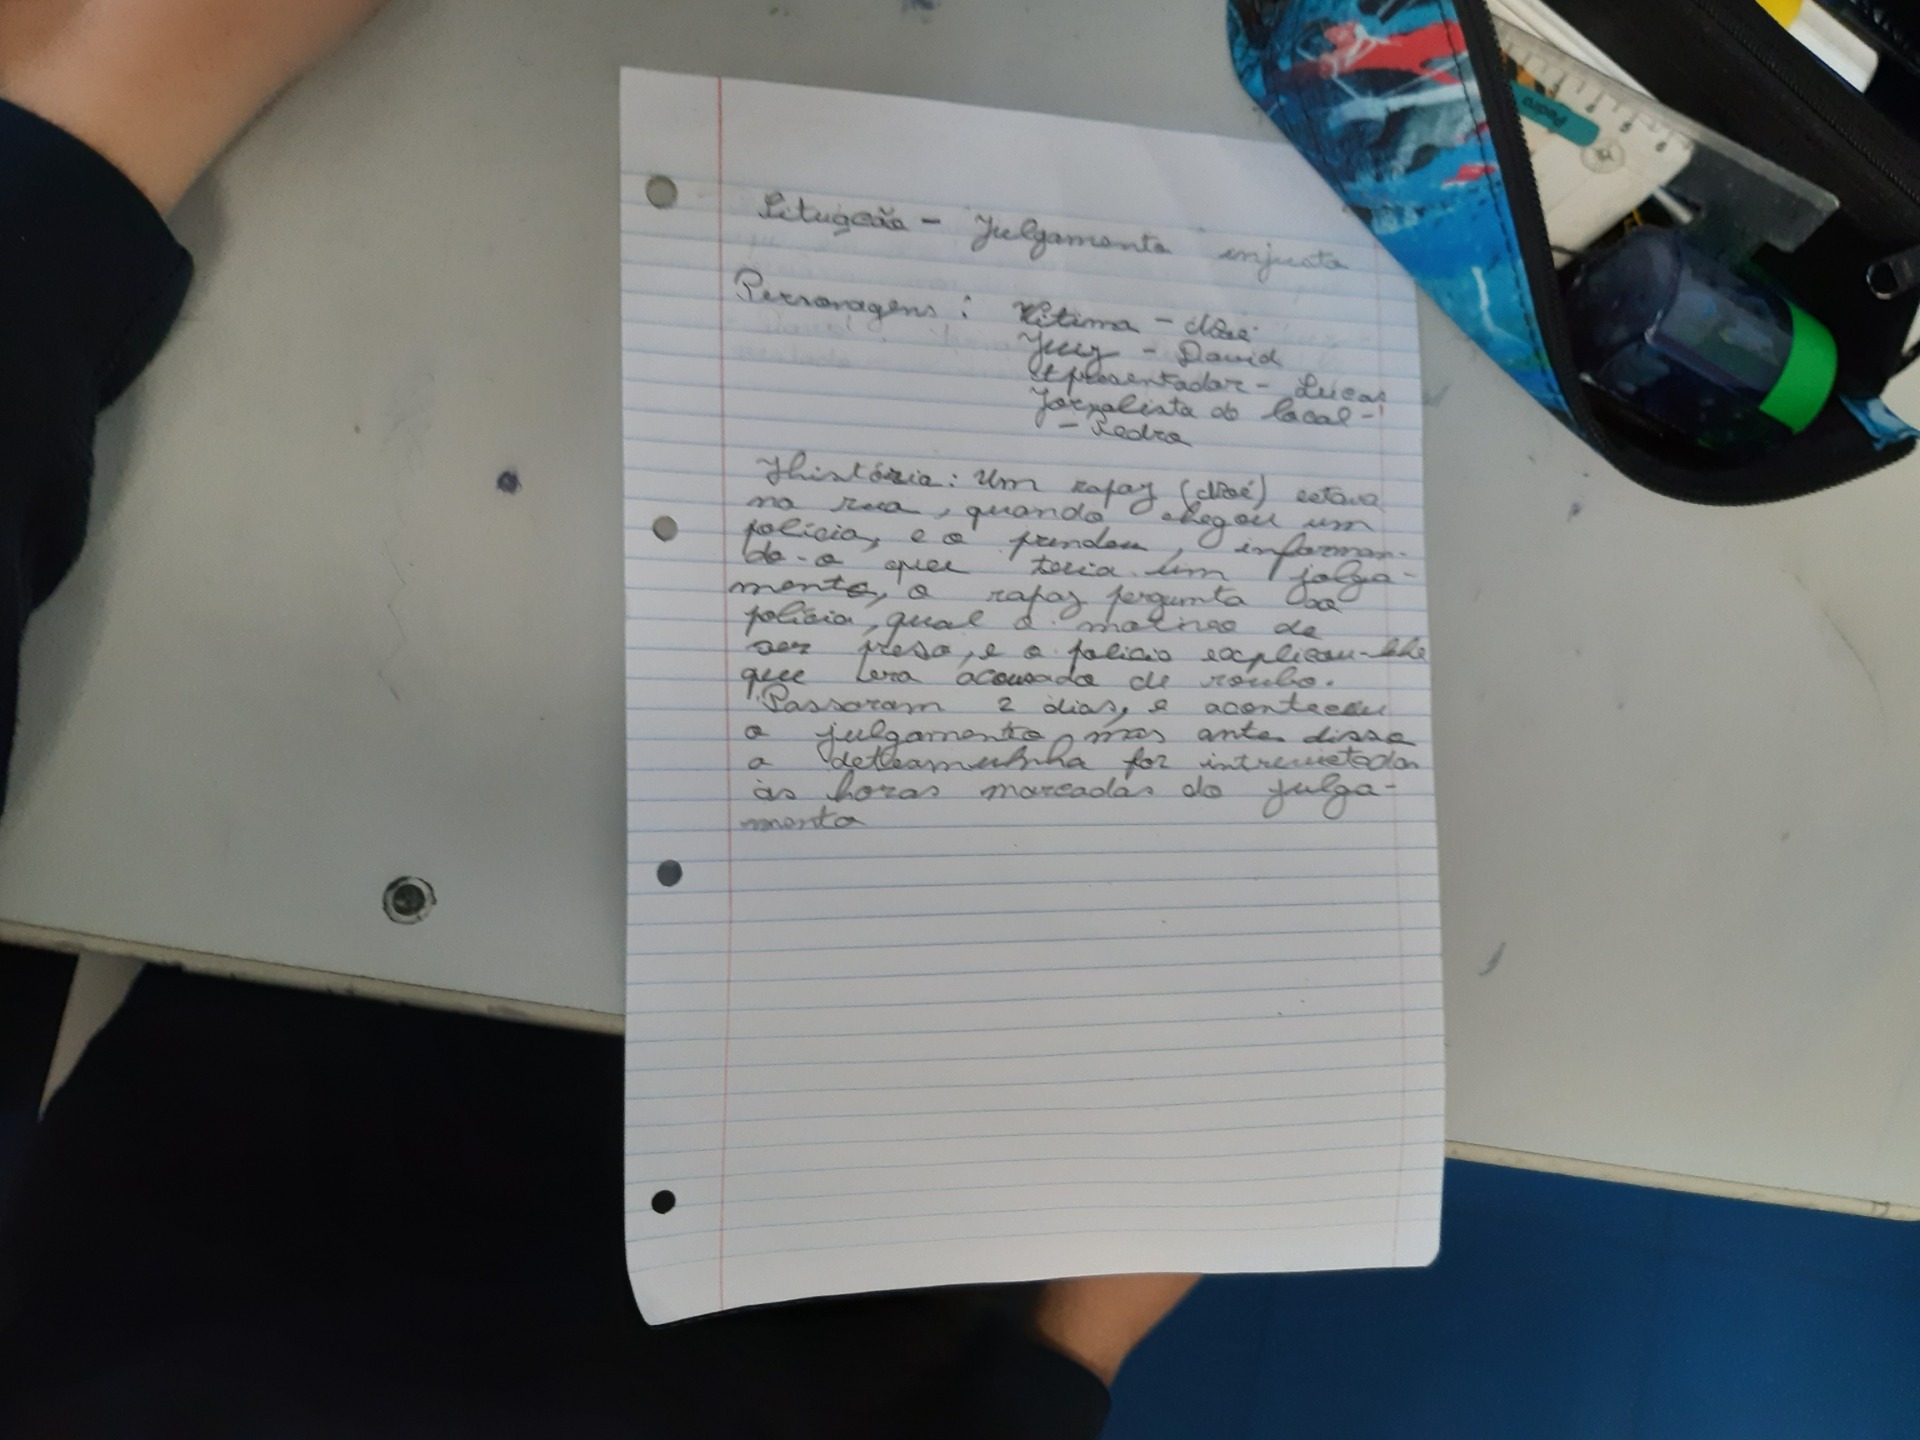 Situação - Julgamento injusto
Personagens: Vítima - José
Juiz - David
Apresentador - Lucas
Jornalista do local -
- Pedro
História: Um rapaz (José) estava
na rua, quando chegou um
polícia, e o prendeu, informan-
do-o que teria um julga-
mento, o rapaz pergunta ao
polícia, qual o motivo de
ser preso, e o policia explicou-lhe
que era acousado de roubo.
Passaram 2 dias, e aconteceu
o julgamento, mas antes disso
a foi
às horas marcadas do julga-
mento
Pedro